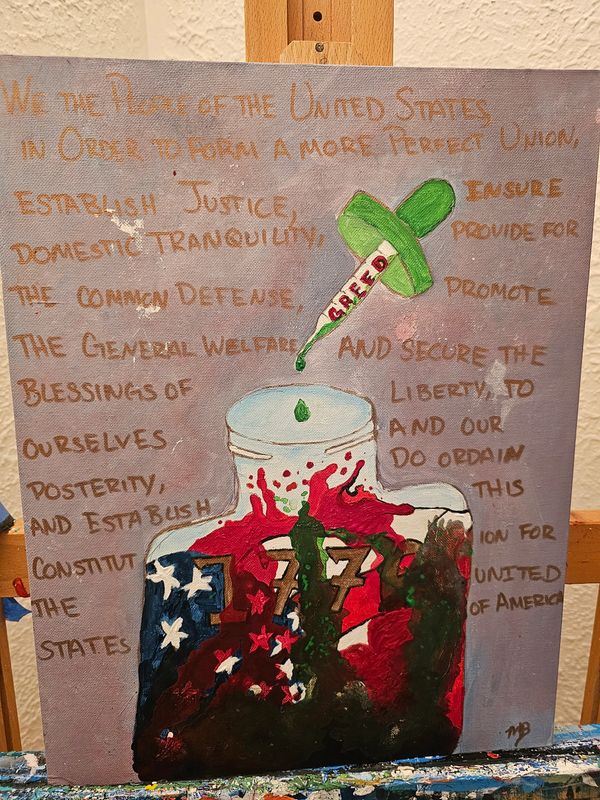 WE THE PEOPLE OF THE UNITED STATES,
IN ORDER TO FORM A MORE PERFECT UNION,
ESTABLISH JUSTICE, ENSURE
DOMESTIC TRANQUILITY, PROVIDE FOR
THE COMMON DEFENSE, PROMOTE
GREED
THE GENERAL WELFARE, AND SECURE THE
BLESSINGS OF LIBERTY, TO
OURSELVES AND OUR
POSTERITY, DO ORDAIN
AND ESTABLISH THIS
CONSTITUT ION FOR
THE UNITED
STATES OF AMERICA
1776
MB